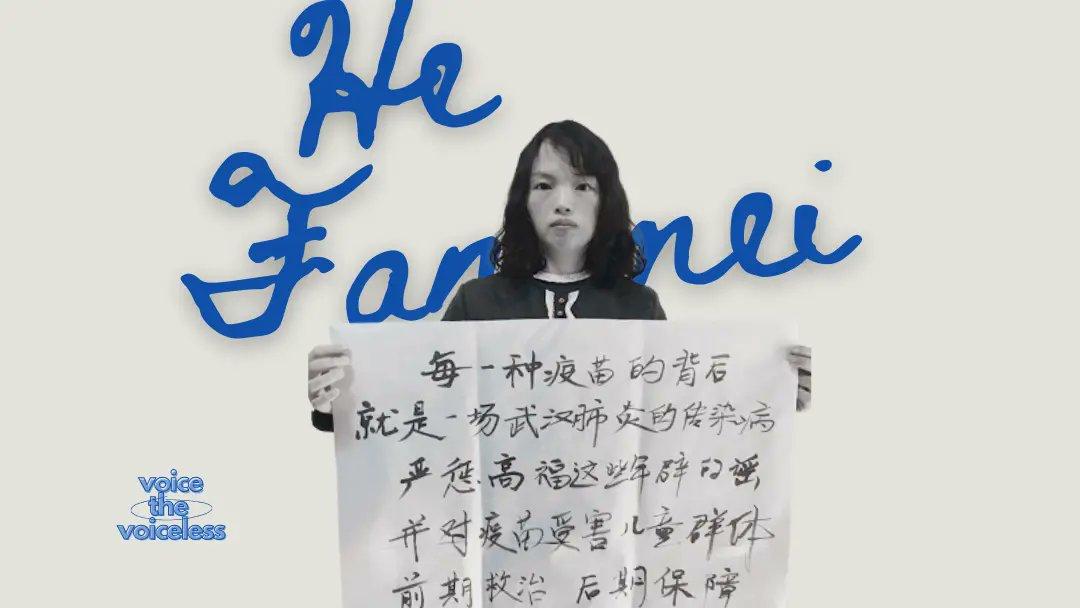 He
Fan mei
每一种疫苗的背后
就是一场武汉肺炎的传染病
严惩高福这些年辟的谣
并对疫苗受害儿童群体
前期救治 后期保障
voice
the
voiceless